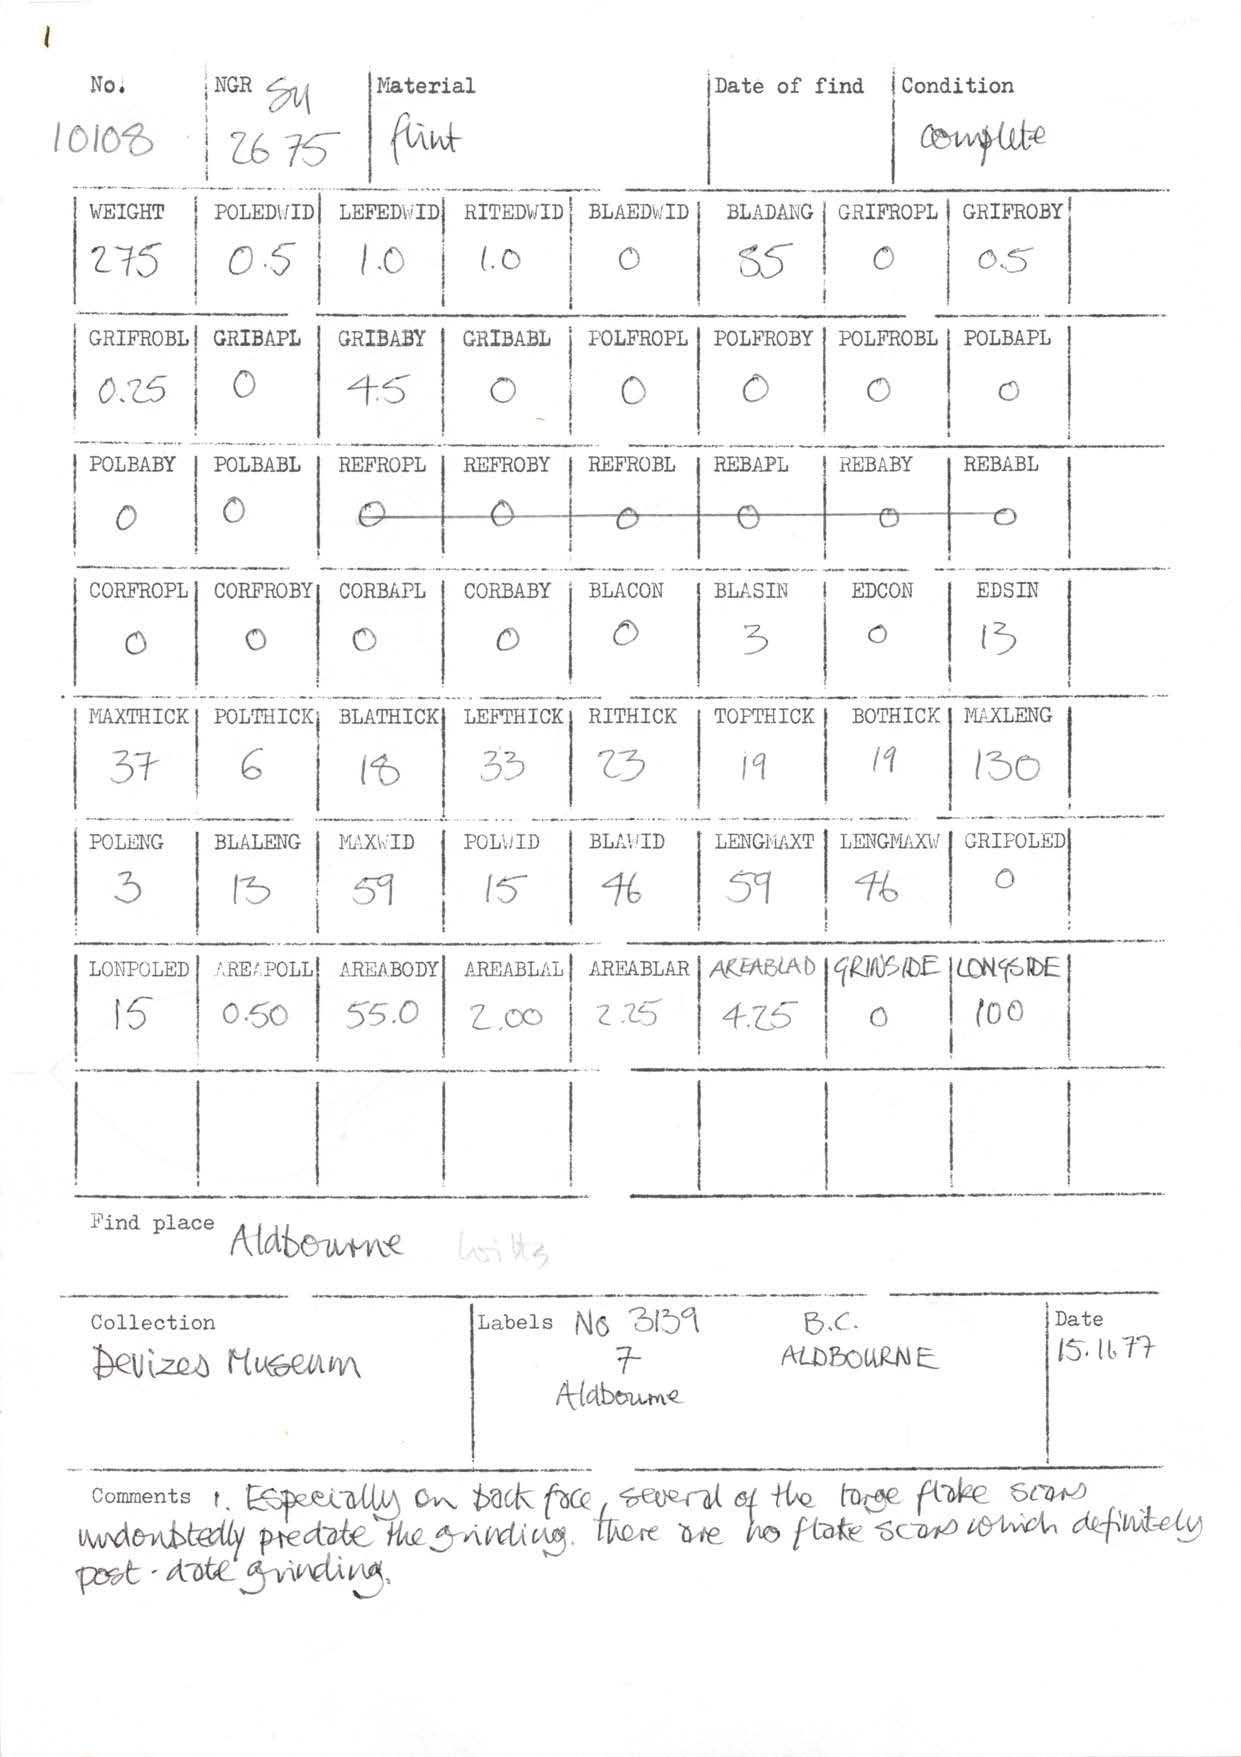 1
No. NGR SU Material Date of find Condition
10108 26 75 flint complete
WEIGHT POLEDWID LEFEDWID RITEDWID BLAEDWID BLADANG GRIFROPL GRIFROBY
275 0.5 1.0 1.0 0 85 0 0.5
GRIFROBL GRIBAPL GRIBABY GRIBABL POLFROPL POLFROBY POLFROBL POLBAPL
0.25 0 4.5 0 0 0 0 0
POLBABY POLBABL REFROPL REFROBY REFROBL REBAPL REBABY REBABL
0 0 0 0 0 0 0 0
CORFROPL CORFROBY CORBAPL CORBABY BLACON BLASIN EDCON EDSIN
0 0 0 0 0 3 0 13
MAXTHICK POLTHICK BLATHICK LEFTHICK RITHICK TOPTHICK BOTHICK MAXLENG
37 6 18 33 23 19 19 130
POLENG BLALENG MAXWID POLWID BLAWID LENGMAXT LENGMAXW GRIPOLED
3 13 59 15 46 59 46 0
LONPOLED AREAPOLL AREABODY AREABLAL AREABLAR AREABLAD GRINSIDE LONGSIDE
15 0.50 55.0 2.00 2.25 4.25 0 100
Find place Aldbourne Wilts
Collection Labels No 3139 B.C. Date
Devizes Museum 7 ALDBOURNE 15.11.77
Aldbourne
Comments 1. Especially on back face, several of the large flake scars
undoubtedly predate the grinding. There are no flake scars which definitely
post-date grinding.